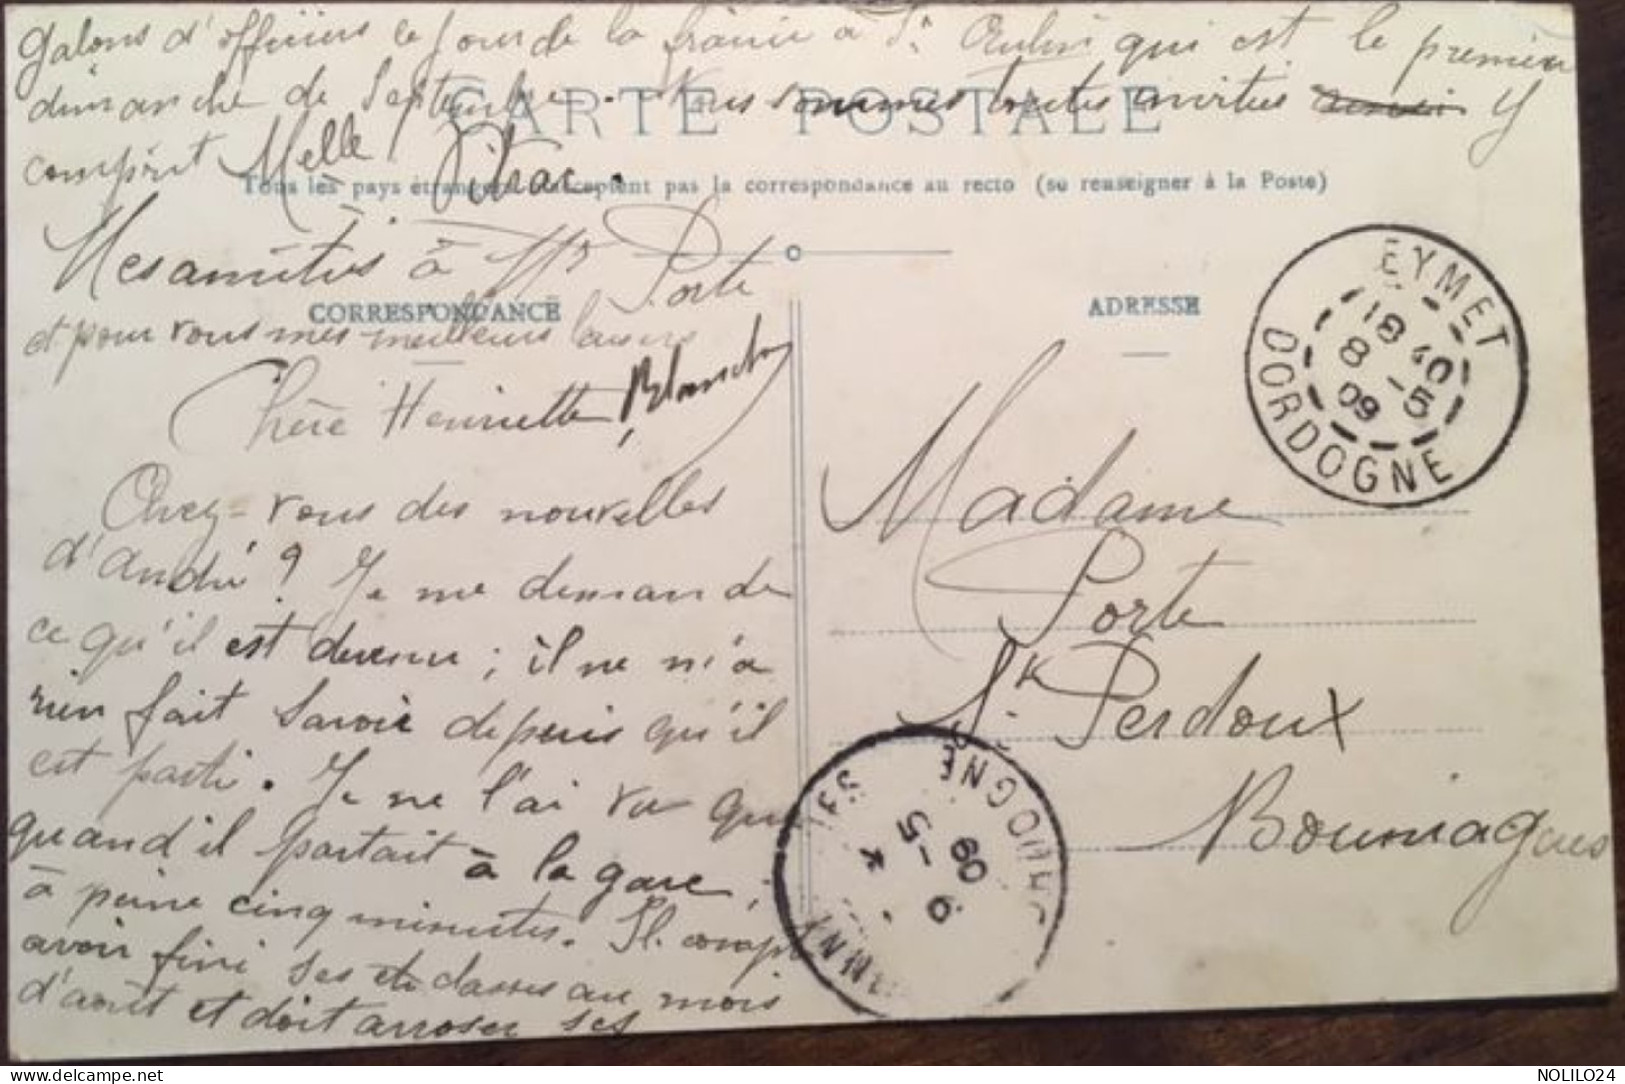 galons d'officiers le jour de la frairie à St Aubin qui est le premier
dimanche de Septembre. Nous sommes toutes invitées Y
CARTE POSTALE
comprit Melle Vitrac.
Tous les pays étrangers n'acceptent pas la correspondance au recto (se renseigner à la Poste)
Mes amitiés à Mr Porte
CORRESPONDANCE
et pour vous mes meilleurs baisers
Blanche
Chère Henriette,
Avez-vous des nouvelles
d'André ? Je me demande
ce qu'il est devenu ; il ne m'a
rien fait savoir depuis qu'il
est parti. Je ne l'ai vu que
quand il partait à la gare,
à peine cinq minutes. Il compte
avoir fini ses classes au mois
d'août et doit arroser ses
ADRESSE
EYMET
18 40
8 -5
09
DORDOGNE
Madame
Porte
St Perdoux
Bouniagues
DORDOGNE
9 -5
09
NOLILO24